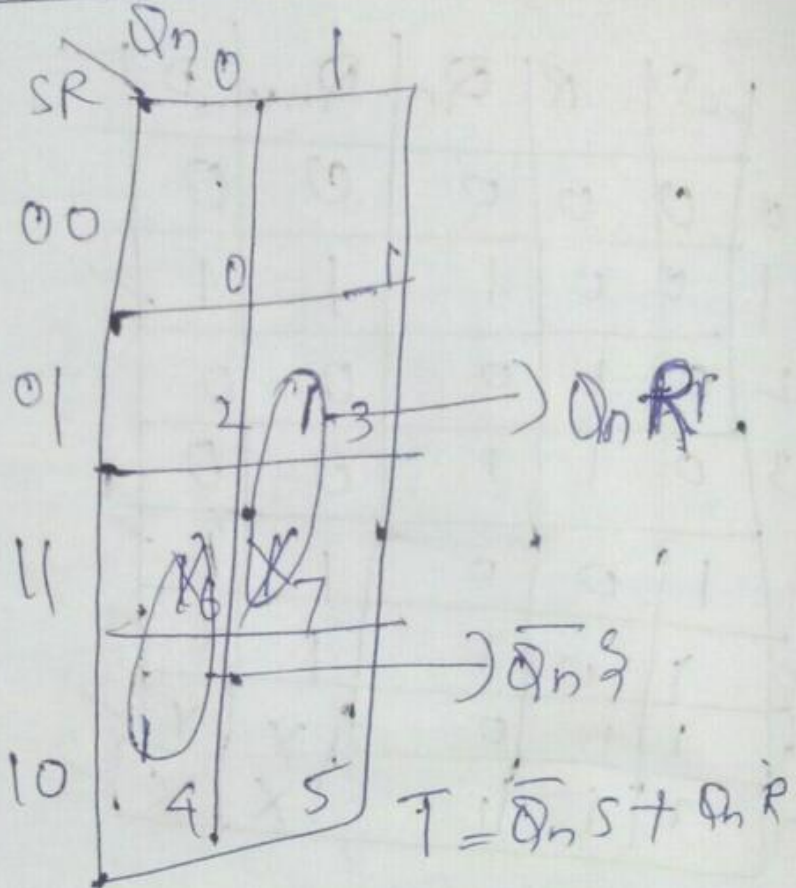 Qn 0 1
SR
00 0 1
01 2 1 3 Qn R
11 X 6 X 7
Q̅n S
10 1 4 5
T = Q̅n S + Qn R